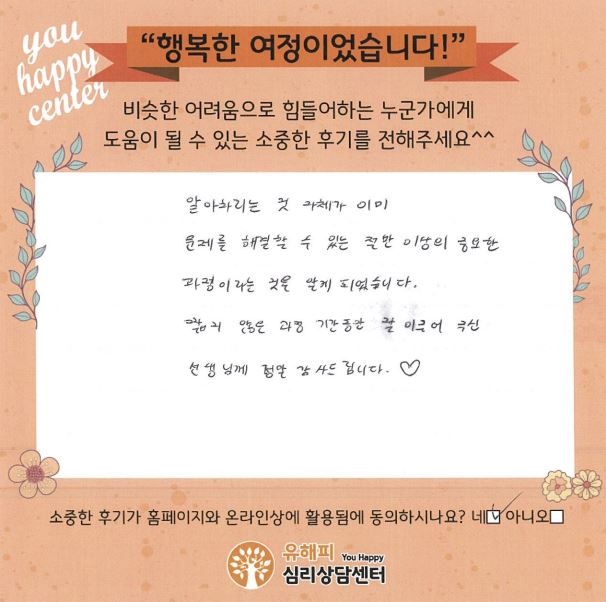 you
happy
center
“행복한 여정이었습니다!”
비슷한 어려움으로 힘들어하는 누군가에게
도움이 될 수 있는 소중한 후기를 전해주세요^^
알아차리는 것 자체가 이미
문제를 해결할 수 있는 절반 이상의 중요한
과정이라는 것을 알게 되었습니다.
않은 과정 기간동안 잘 이끌어 주신
선생님께 정말 감사드립니다. ♡
소중한 후기가 홈페이지와 온라인상에 활용됨에 동의하시나요? 네☑ 아니오☐
유해피 You Happy
심리상담센터